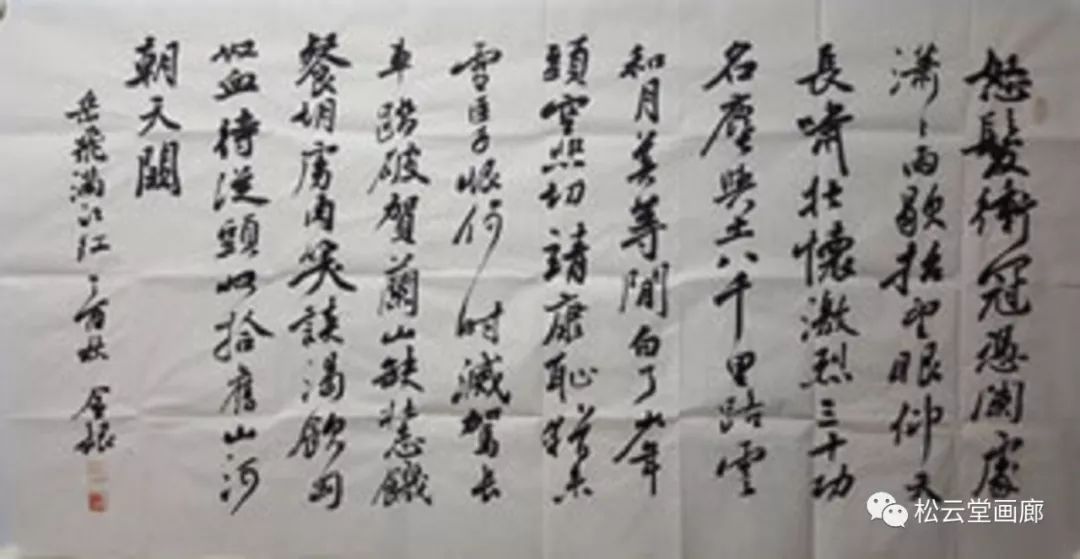 怒髮衝冠憑闌處
潇〻雨歇抬望眼仰天
長嘯壯懷激烈三十功
名塵與土八千里路雲
和月莫等閒白了少年
頭空悲切靖康恥猶未
雪臣子恨何時滅駕長
車踏破賀蘭山缺壮志饑
餐胡虜肉笑談渴飲匈
奴血待從頭收拾舊山河
朝天闕
岳飛滿江红 丁酉秋 金根
松云堂画廊